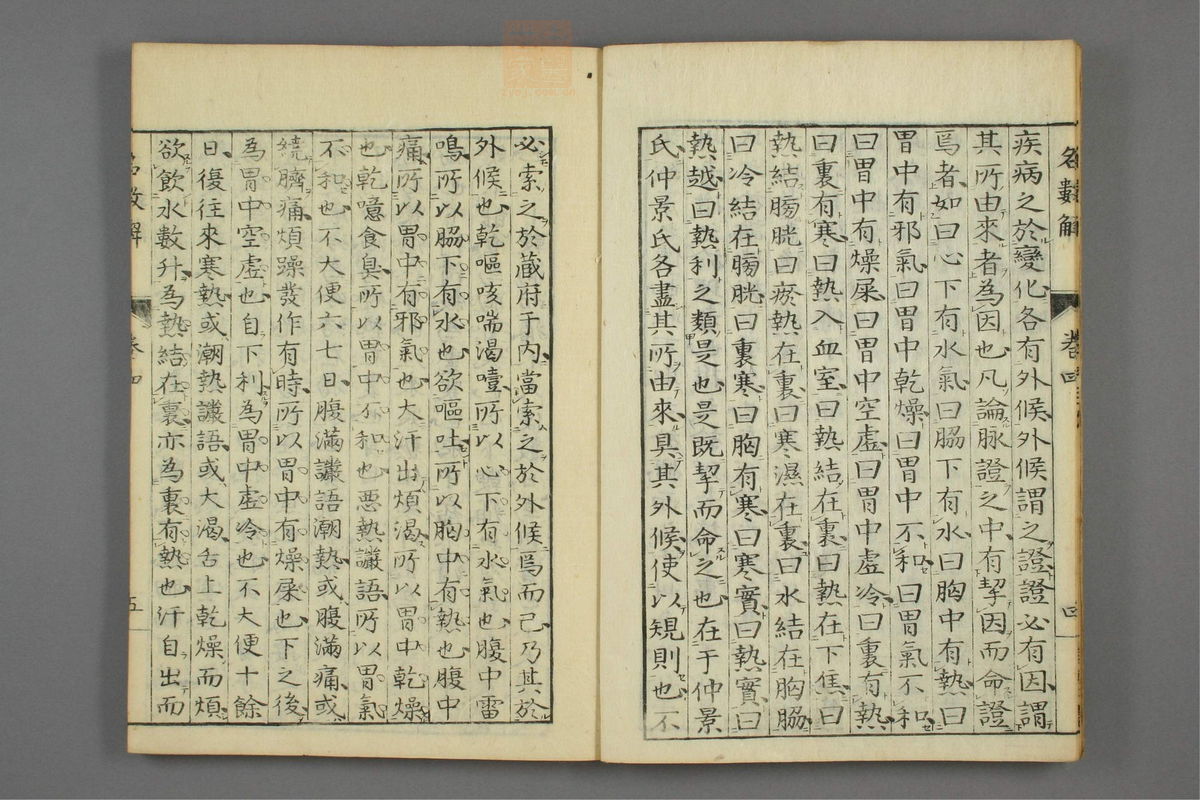 名數解 卷四 四
疾病之於變化各有外候外候謂之證證必有因謂
其所由來者為因也凡論脉證之中有挈因而命證
焉者如曰心下有水氣曰脇下有水曰胸中有熱曰
胃中有邪氣曰胃中乾燥曰胃中不和曰胃氣不和
曰胃中有燥屎曰胃中空虛曰胃中虛冷曰裏有熱
曰裏有寒曰熱入血室曰熱結在裏曰熱在下焦曰
熱結膀胱曰瘀熱在裏曰寒濕在裏曰水結在胸脇
曰冷結在膀胱曰裏寒曰胸有寒曰寒實曰熱實曰
熱越曰熱利之類是也是既挈而命之也在于仲景
氏仲景氏各盡其所由來具其外候使以規則也不
必索之於藏府于內當索之於外候焉而已乃其於
外候也乾嘔咳喘渴噎所以心下有水氣也腹中雷
鳴所以脇下有水也欲嘔吐所以胸中有熱也腹中
痛所以胃中有邪氣也大汗出煩渴所以胃中乾燥
也乾噫食臭所以胃中不和也惡熱讝語所以胃氣
不和也不大便六七日腹滿讝語潮熱或腹滿痛或
繞臍痛煩躁發作有時所以胃中有燥屎也下之後
為胃中空虛也自下利為胃中虛冷也不大便十餘
日復往來寒熱或潮熱讝語或大渴舌上乾燥而煩
欲飲水數升為熱結在裏亦為裏有熱也汗自出而
名數解 卷四 五